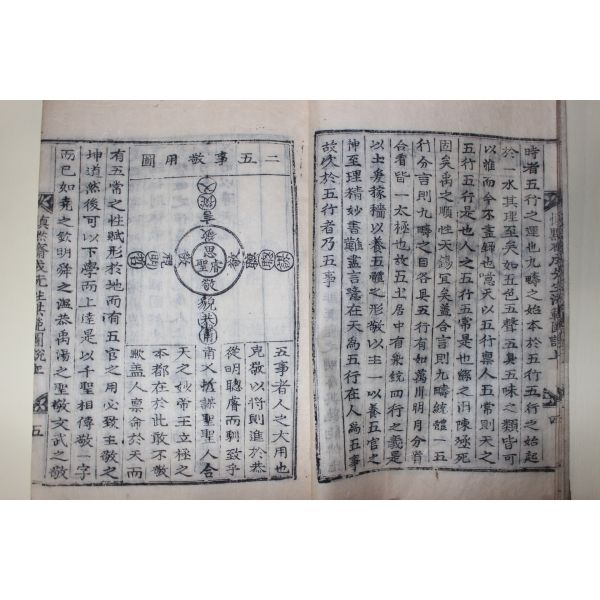 時者五行之運也九疇之始本於五行五行之始起
於一水其理至矣如五色五聲五臭五味之類皆可
以推而今不盡錄也噫天以五行禀人五常則天之
五行五行是也人之五行五常是也鯀之汨陳殛死
固矣禹之順性天錫宜矣蓋合言則九疇統體一五
行分言則九疇之目各具五行有如萬川明月分看
合看皆一太極也故五土居中有兼統四行之義是
以土爰稼穡以養五體之形敬以主一以養五官之
神至理精妙書難盡言噫在天爲五行在人爲五事
故次於五行者乃五事
二五事敬用圖
思
睿
聖
敬
貌
恭
肅
聰
明
五事者人之大用也
克敬以將則進於恭
從明聰睿而馴致乎
肅乂哲謀聖聖人合
天之妙帝王立極之
本都在於此敢不敬
歟盖人禀命於天而
有五常之性賦形於地而有五官之用必致主敬之
坤道然後可以下學而上達是以千聖相傳敬一字
而已如堯之欽明舜之溫恭禹湯之聖敬文武之敬
五